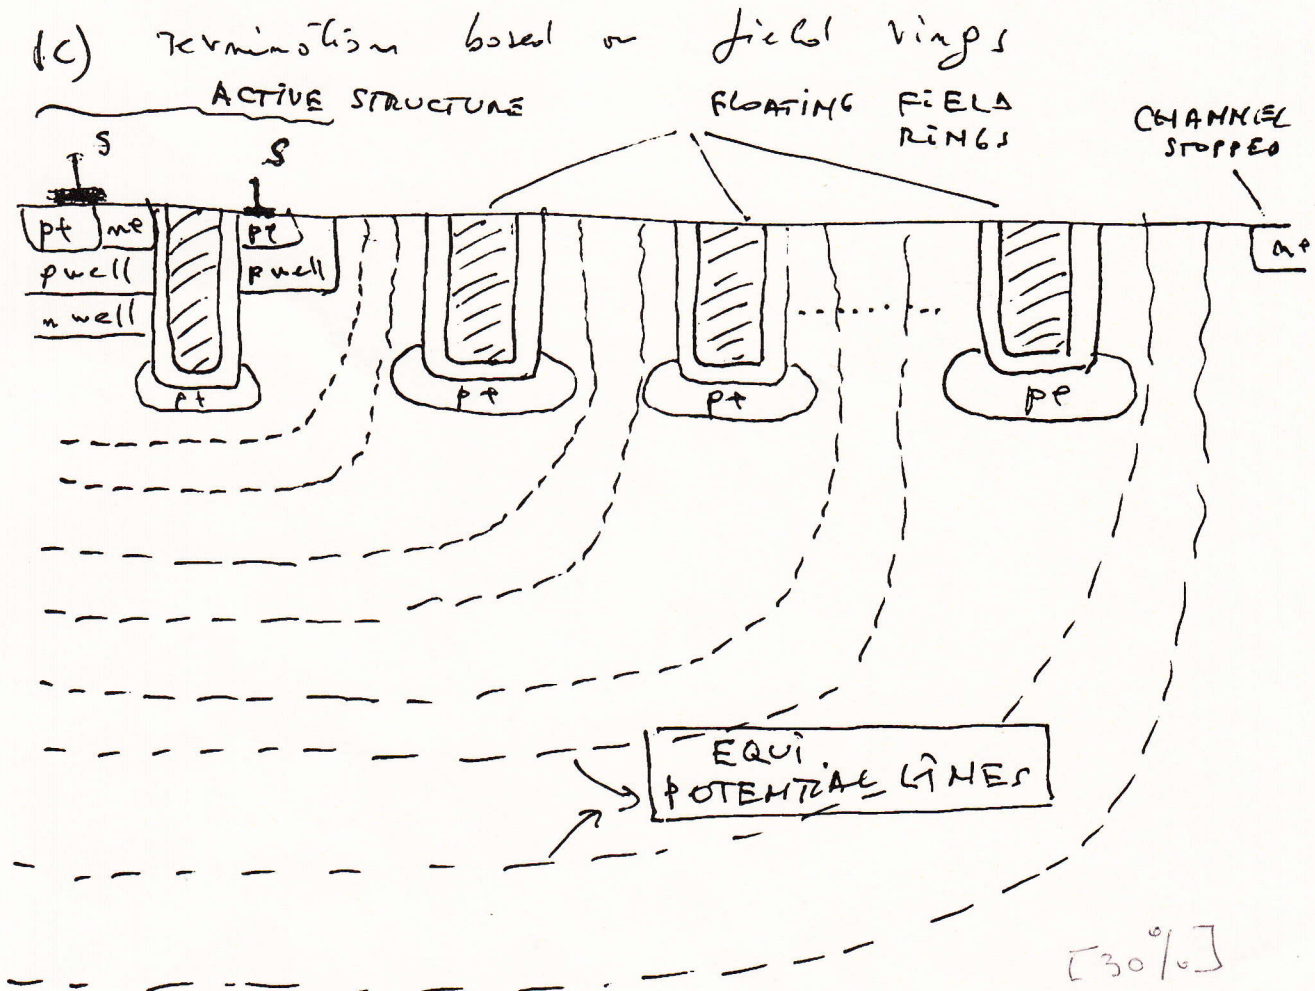 (c) Termination based on field rings
ACTIVE STRUCTURE
FLOATING FIELD
RINGS
CHANNEL
STOPPED
S
S
p+ n+
p+
n+
pwell
pwell
n well
p+
p+
p+
p+
EQUI.
POTENTIAL LINES
[30%]